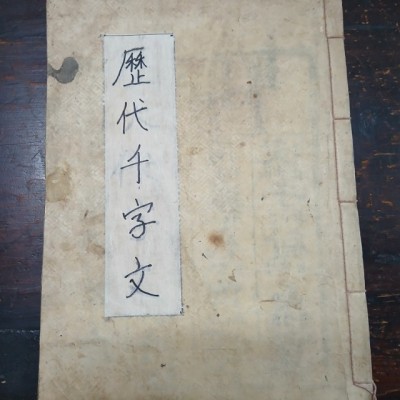 歷代千字文